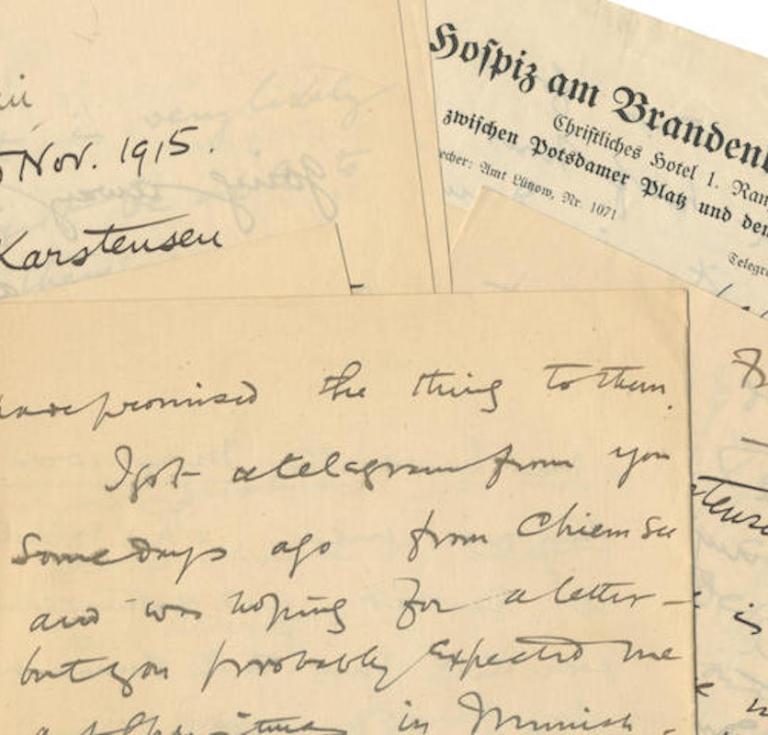 Nov. 1915.
Karstensen
Hospiz am Brandenb
Christliches Hotel 1. Ran
zwischen Potsdamer Platz und den
echer: Amt Lützow, Nr. 1071
Telegr
have promised the thing to them.
I got a telegram from you
some days ago from Chiemsee
and was hoping for a letter –
but you probably expected me
in Munich.
is